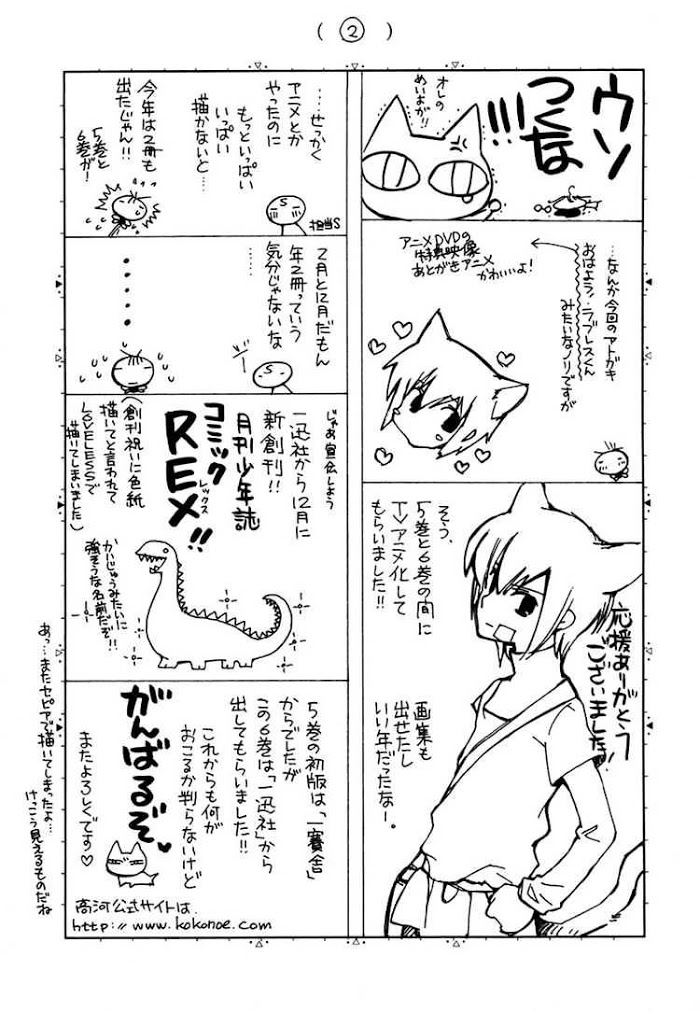 (②)
ウソ
つくな
!!!
オレの
めいよが!!
…なんか今回のアトガキ
おはよう!ラブレスくん
みたいなノリですが
アニメDVDの
特典映像
あとがきアニメ
かわいいよ!
そう、
5巻と6巻の間に
TVアニメ化して
もらいました!!
応援ありがとう
ございました!
画集も
出せたし
いい年だったなー。
……せっかく
アニメとか
やったのに
もっといっぱい
いっぱい
描かないと……
担当S
今年は2冊も
出たじゃん!!
5巻と
6巻が!
2月と12月だもん
年2冊っていう
気分じゃないな
……
じゃあ宣伝しよう
一迅社から12月に
新創刊!!
月刊少年誌
コミック
REX!!
レックス
(創刊祝いに色紙
描いてと言われて
LOVELESSで
描いてしまいました)
かいじゅうみたいに
強そうな名前だぞ!!
5巻の初版は、「一賽舎」
からでしたが
この6巻は、「一迅社」から
出してもらいました!!
これからも何が
おこるか判らないけど
がんばるぞ
またよろしくです♡
高河公式サイトは、
http://www.kokonoe.com
あっ…またセピアで描いてしまったよ…
けっこう見えるものだね